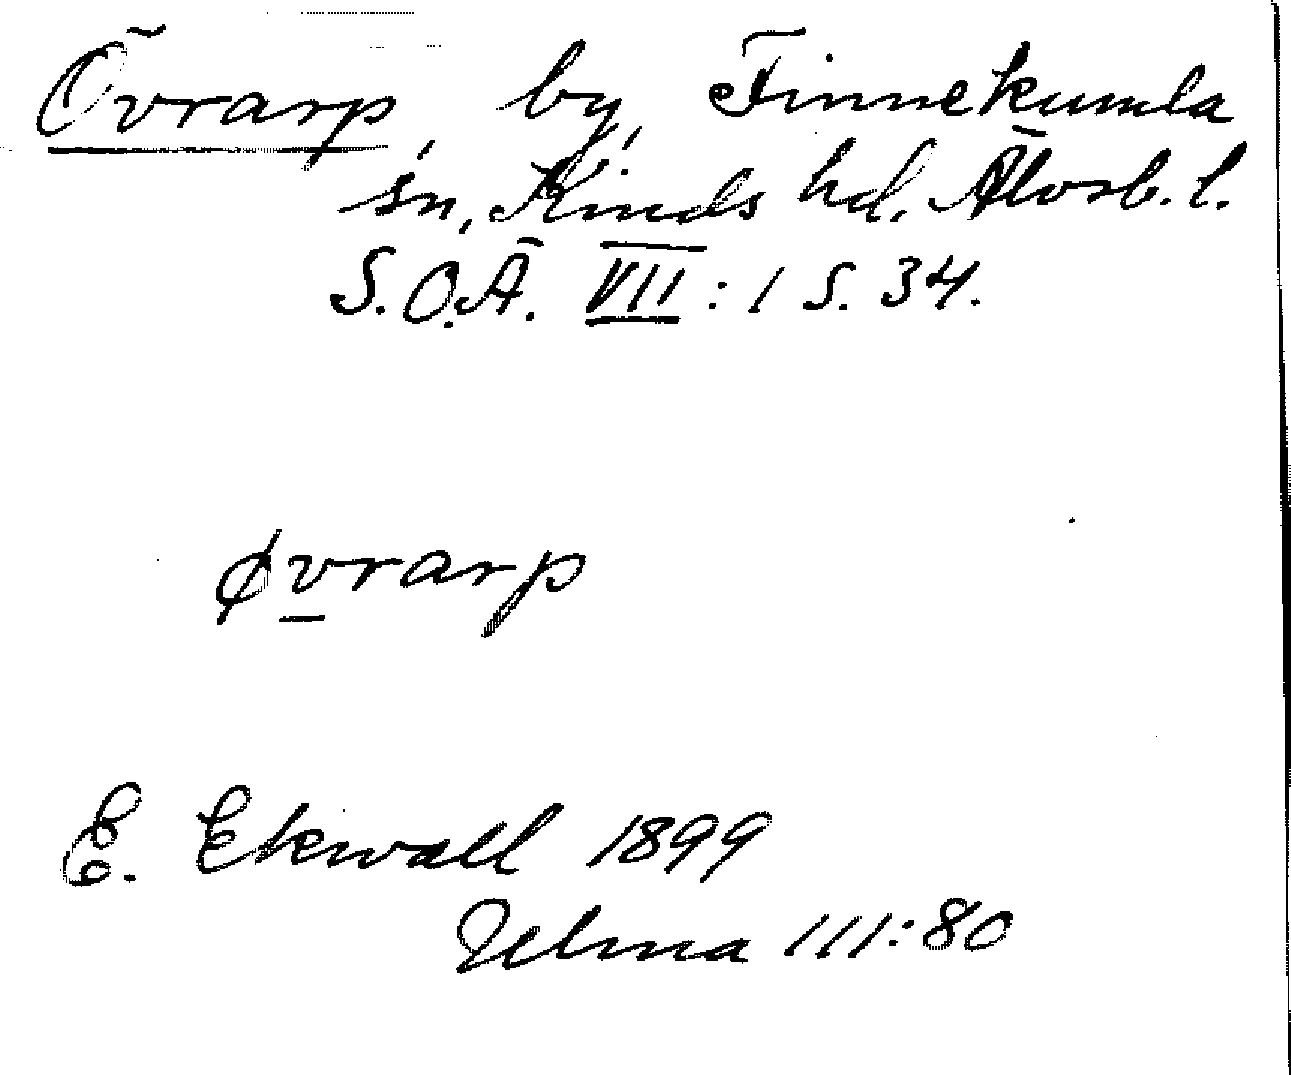 Övrarp, by, Finnekumla
sn, Kinds hd. Älvsb. l.
S.O.Ä. VII : 1 S. 34.
øvrarp
E. Ekwall 1899
Ulma 111:80